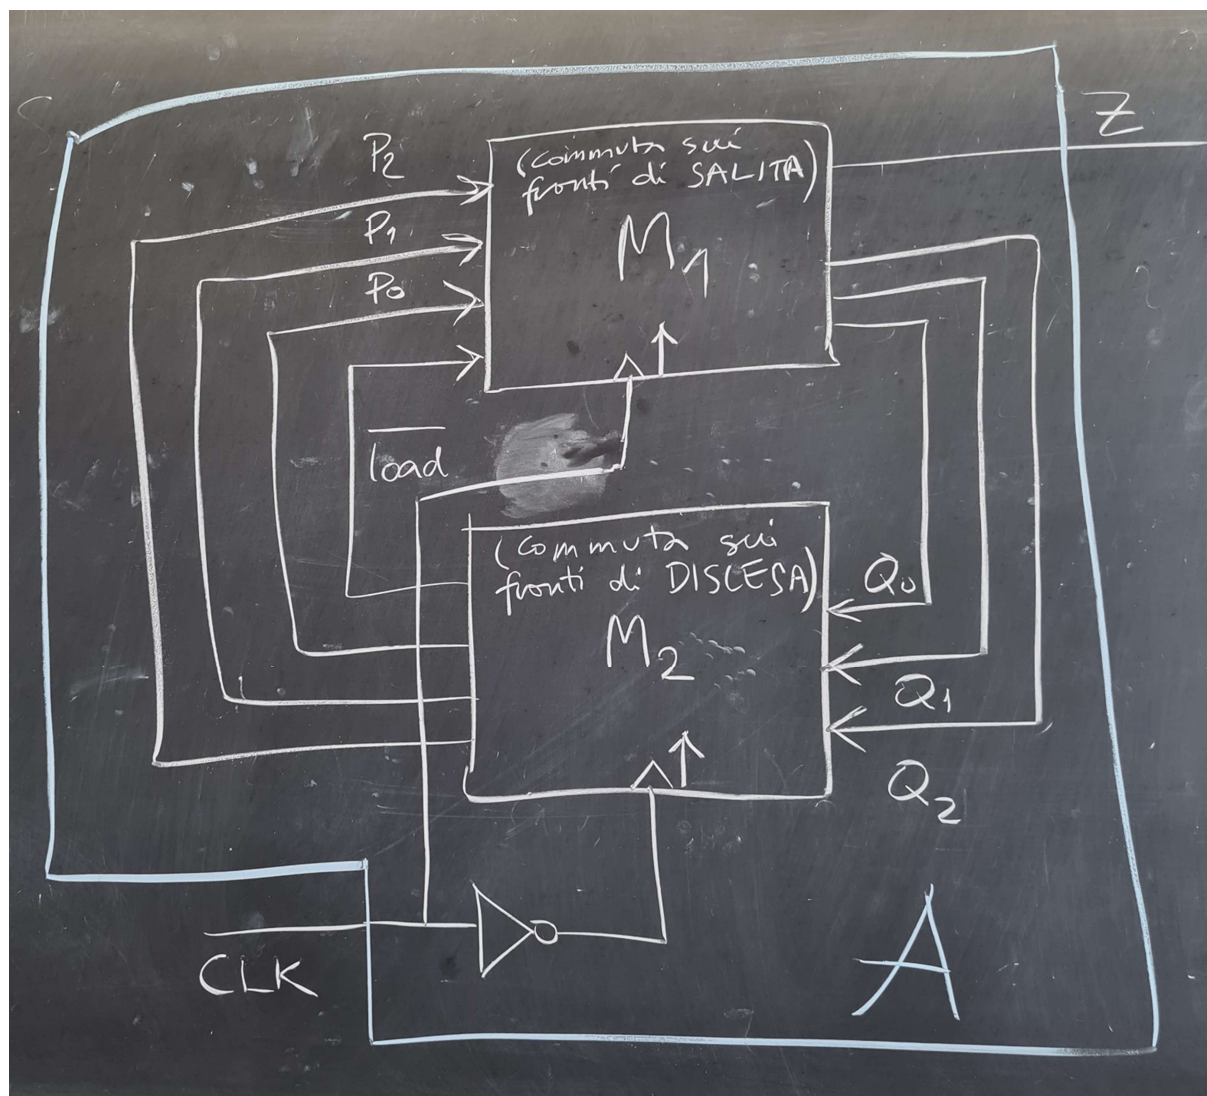 Z
P2
(commuta sui
fronti di SALITA)
P1
M1
P0
load
(commuta sui
fronti di DISCESA)
Q0
M2
Q1
Q2
A
CLK